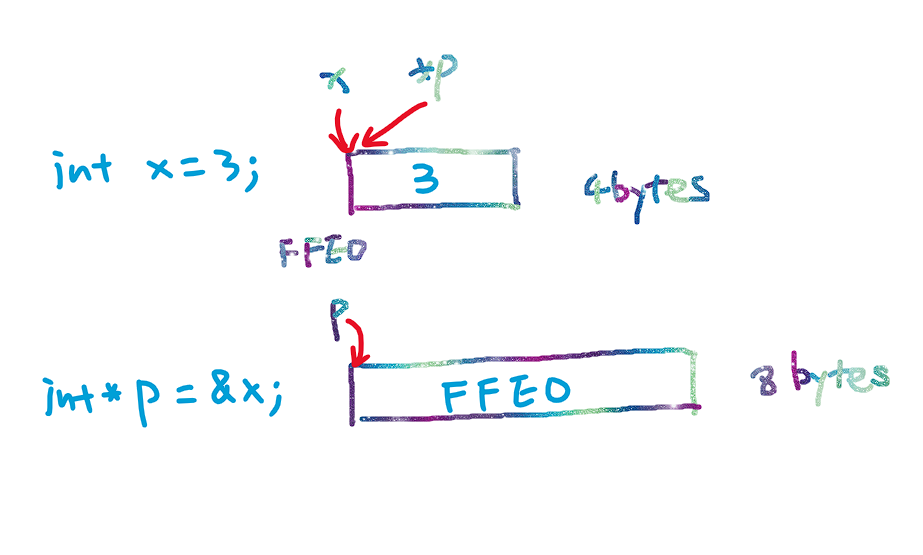 x *p
int x = 3; 3 4bytes
FFE0
p
int* p = &x; FFE0 8 bytes